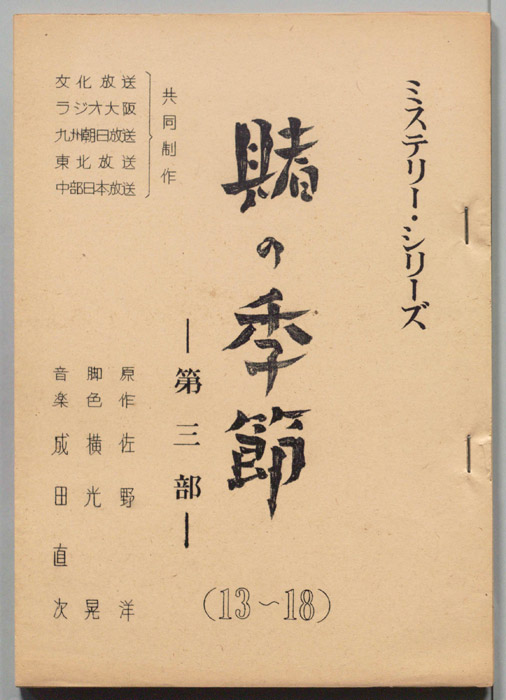 ミステリー・シリーズ
賭の季節
―第三部―
(13～18)
文化放送
ラジオ大阪
九州朝日放送
東北放送
中部日本放送
共同制作
原作 佐野洋
脚色 横光晃
音楽 成田直次